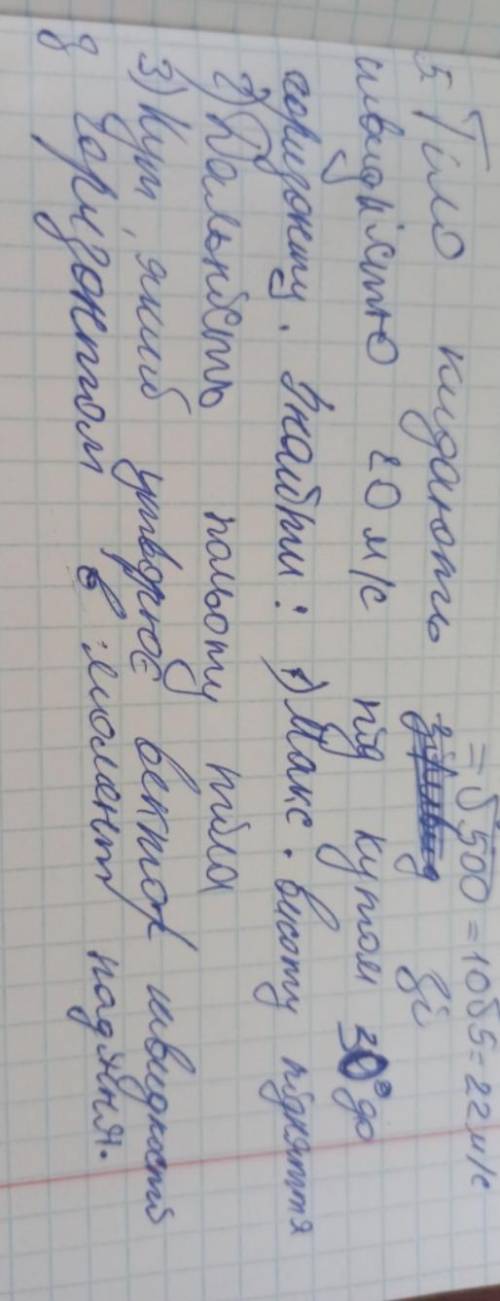 = √500 = 10√5 = 22 м/с
5. Тіло кидають зі
швидкістю 20 м/с під кутом 30° до
горизонту. Знайти: 1) Макс. висоту підняття
2) Дальність польоту тіла
3) Кут, який утворює вектор швидкості
з горизонтом в момент падіння.